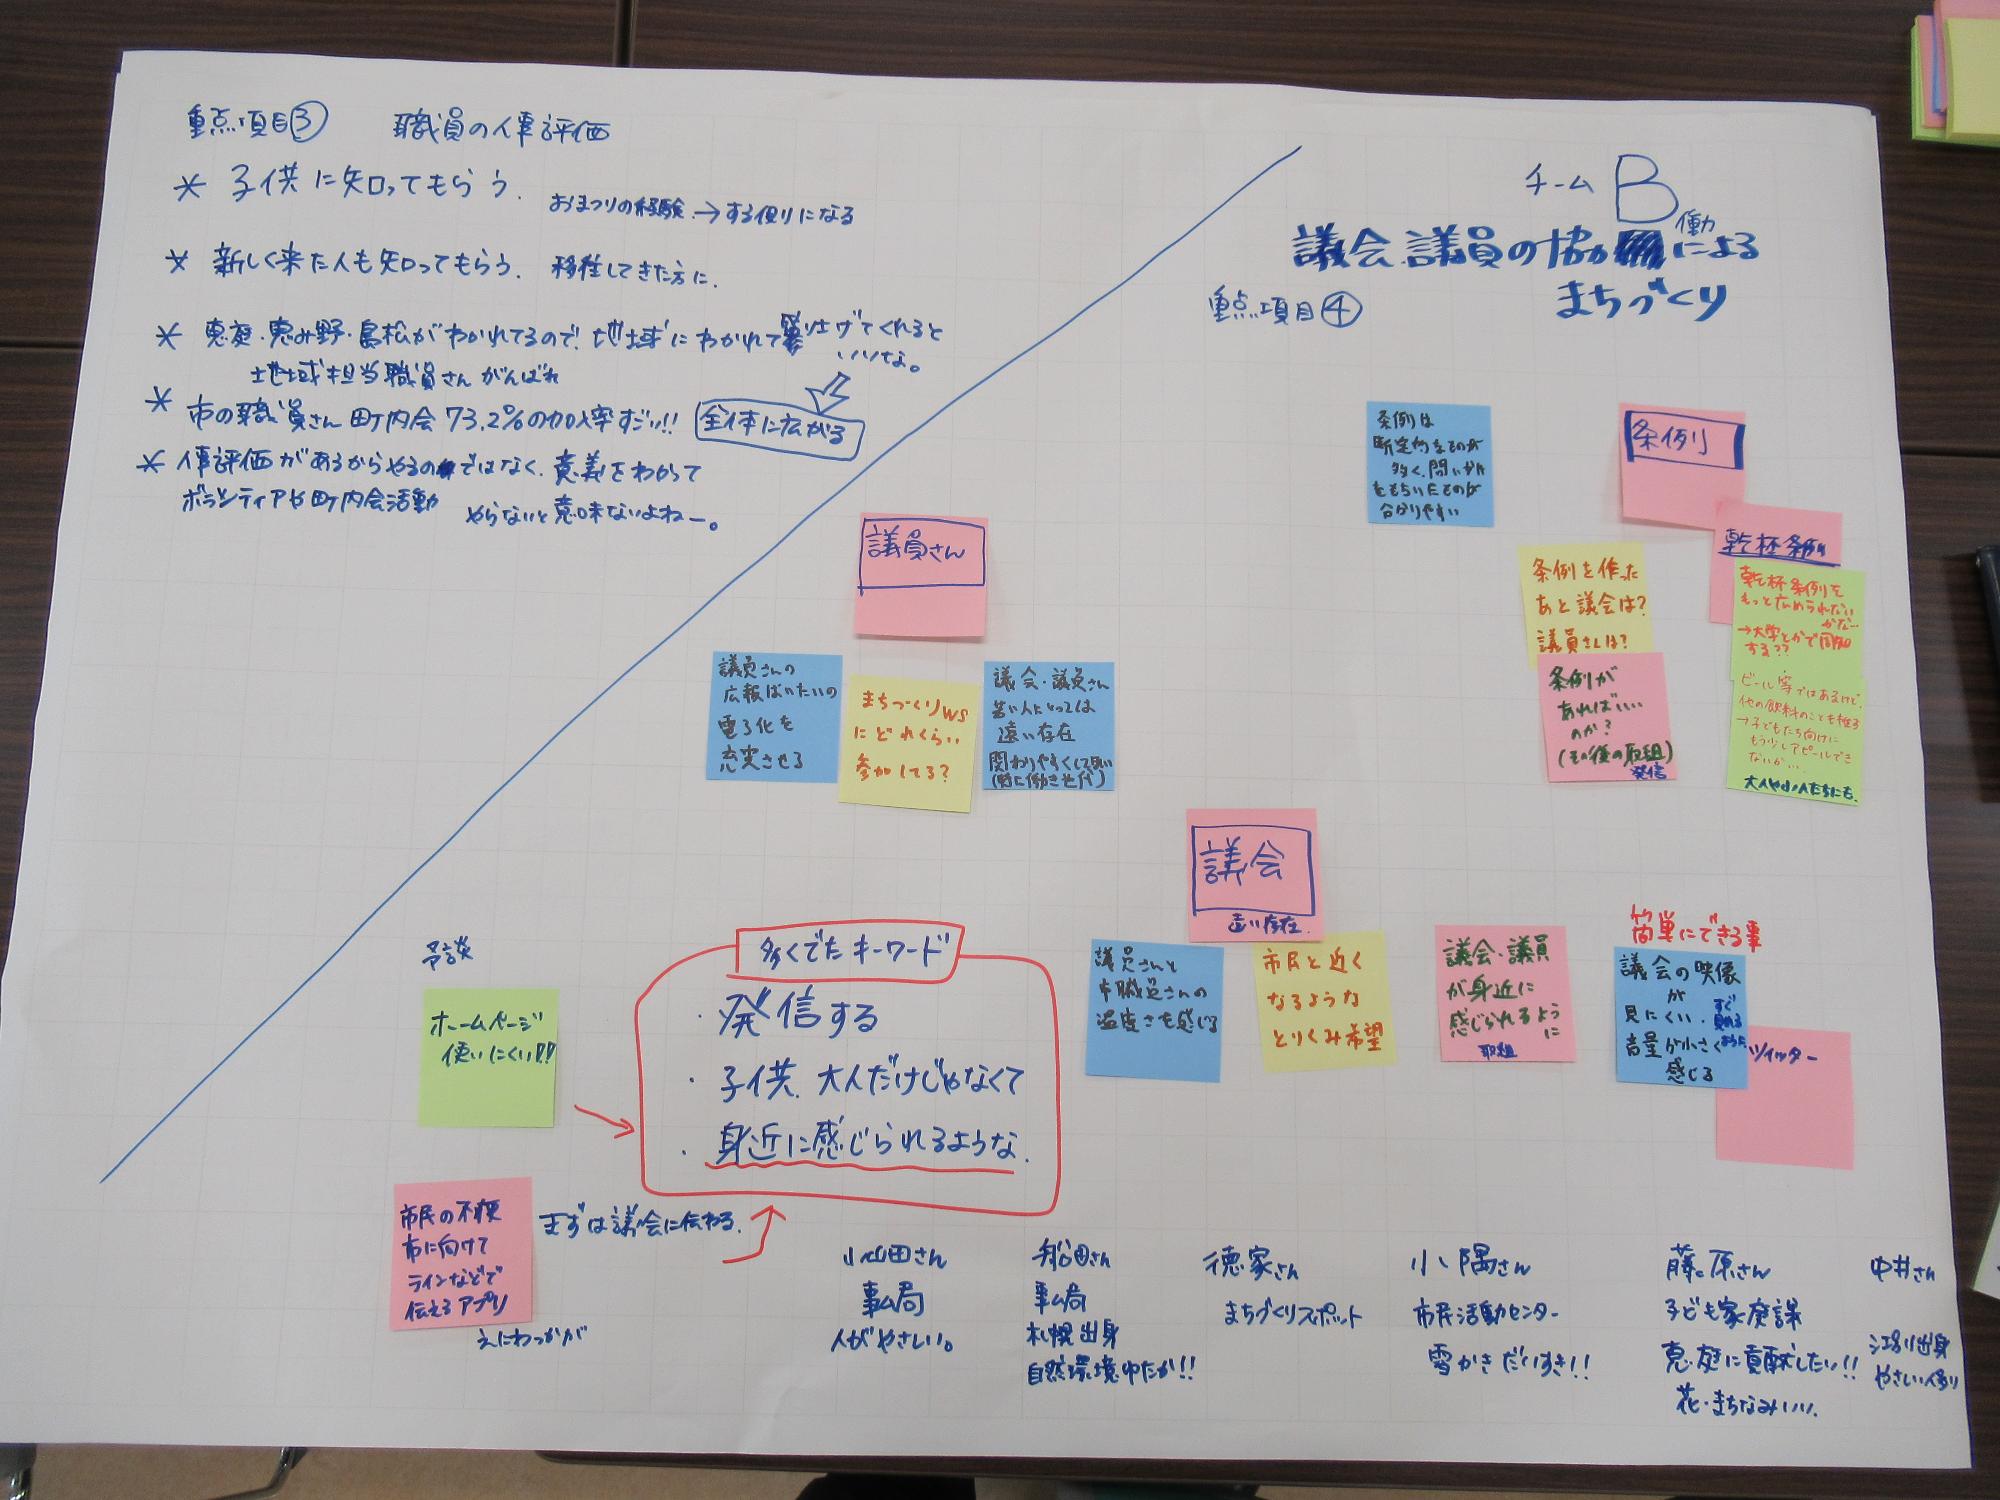 重点項目③ 職員の人事評価
* 子供に知ってもらう.
おまつりの経験.→する側りになる
* 新しく来た人も知ってもらう. 移住してきた方に.
* 恵庭・恵み野・島松がわかれてるので.地域にわかれて
り上げてくれると
いいな。
地域担当職員さんがんばれ
* 市の職員さん町内会73.2%の加入率すごい!!
全体に広がる
* 人事評価があるからやるのではなく.意義をわかって
ボランティアや町内会活動 やらないと意味ないよねー。
チームB
議会.議員の協働による
まちづくり
重点項目④
条例は
断定的なものが
多く、問いかけ
をもちいたものが
分かりやすい
条例
乾杯条例
条例を作った
あと議会は?
議員さんは?
条例が
あればいい
のか?
(その後の取組)
発信
乾杯条例を
もっと広められない
かな…
→大学とかで周知
する??
ビール等ではあるけど、
他の飲料のことも
→子どもたち向けに
もう少しアピールでき
ないか…
議員さん
議員さんの
広報ばいたいの
電子化を
充実させる
まちづくりWS
にどれくらい
参加してる?
議会・議員さん
若い人にとっては
遠い存在
関わりやすくして欲しい
(特に働き世代)
議会
遠い存在.
議員さんと
市職員さんの
温度さを感じる
市民と近く
なるような
とりくみ希望
議会・議員
が身近に
感じられるよう
に
取組
簡単にできる事
議会の映像
が
見にくい.
音量が小さく
感じる
すぐ
見れる
ように
ツイッター
予談
ホームページ
使いにくい!!
多くでたキーワード
・発信する
・子供.大人だけじゃなくて
・身近に感じられるような.
市民の不便
市に向けて
ラインなどで
伝えるアプリ
まずは議会に伝わる.
えにわっかが
小山田さん
事ム局
人がやさしい。
船田さん
事ム局
札幌出身
自然環境ゆたか!!
徳家さん
まちづくりスポット
小隅さん
市民活動センター
雪かきだいすき!!
藤原さん
子ども家庭課
恵庭に貢献したい!!
花・まちなみいい.
中井さん
江別出身
やさしい人多い